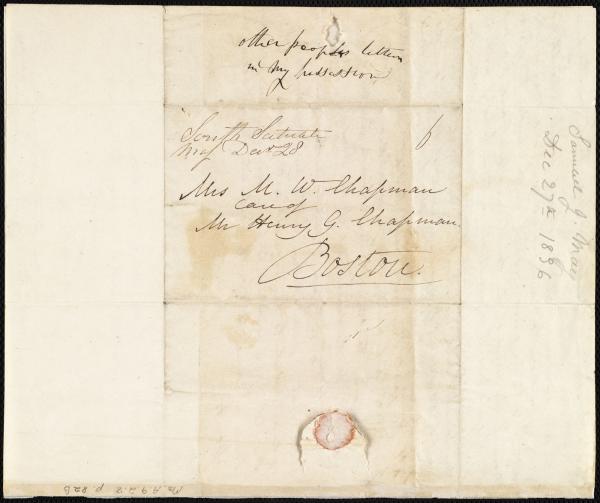 other peoples letters
in my possession
South Scituate
Mas Decr 28
6
Mrs M. W. Chapman
care of
Mr Henry G. Chapman.
Boston.
Samuel J. May
Dec 27th 1836
Ms. A. 9. 2. 8 p. 82b